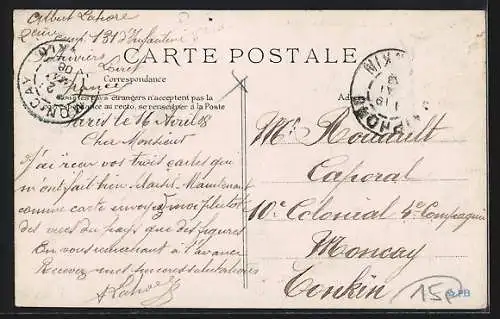 Albert Lahore
131 d'Infanterie
CARTE POSTALE
Loiret
France
Correspondance
Tous les pays étrangers n'acceptent pas la
Correspondance au recto, se renseigner à la Poste
MONCAY
TONKIN
Paris le 16 Avril 08
Cher Monsieur
J'ai reçu vos trois cartes qui
m'ont fait bien plaisir. Maintenant
comme carte envoyez moi plutôt
des vues du pays que des figures
En vous remerciant à l'avance
Recevez mes sincères salutations
A Lahore
Mr. Rouault
Caporal
10e Colonial 4e Compagnie
Moncay
Tonkin
15